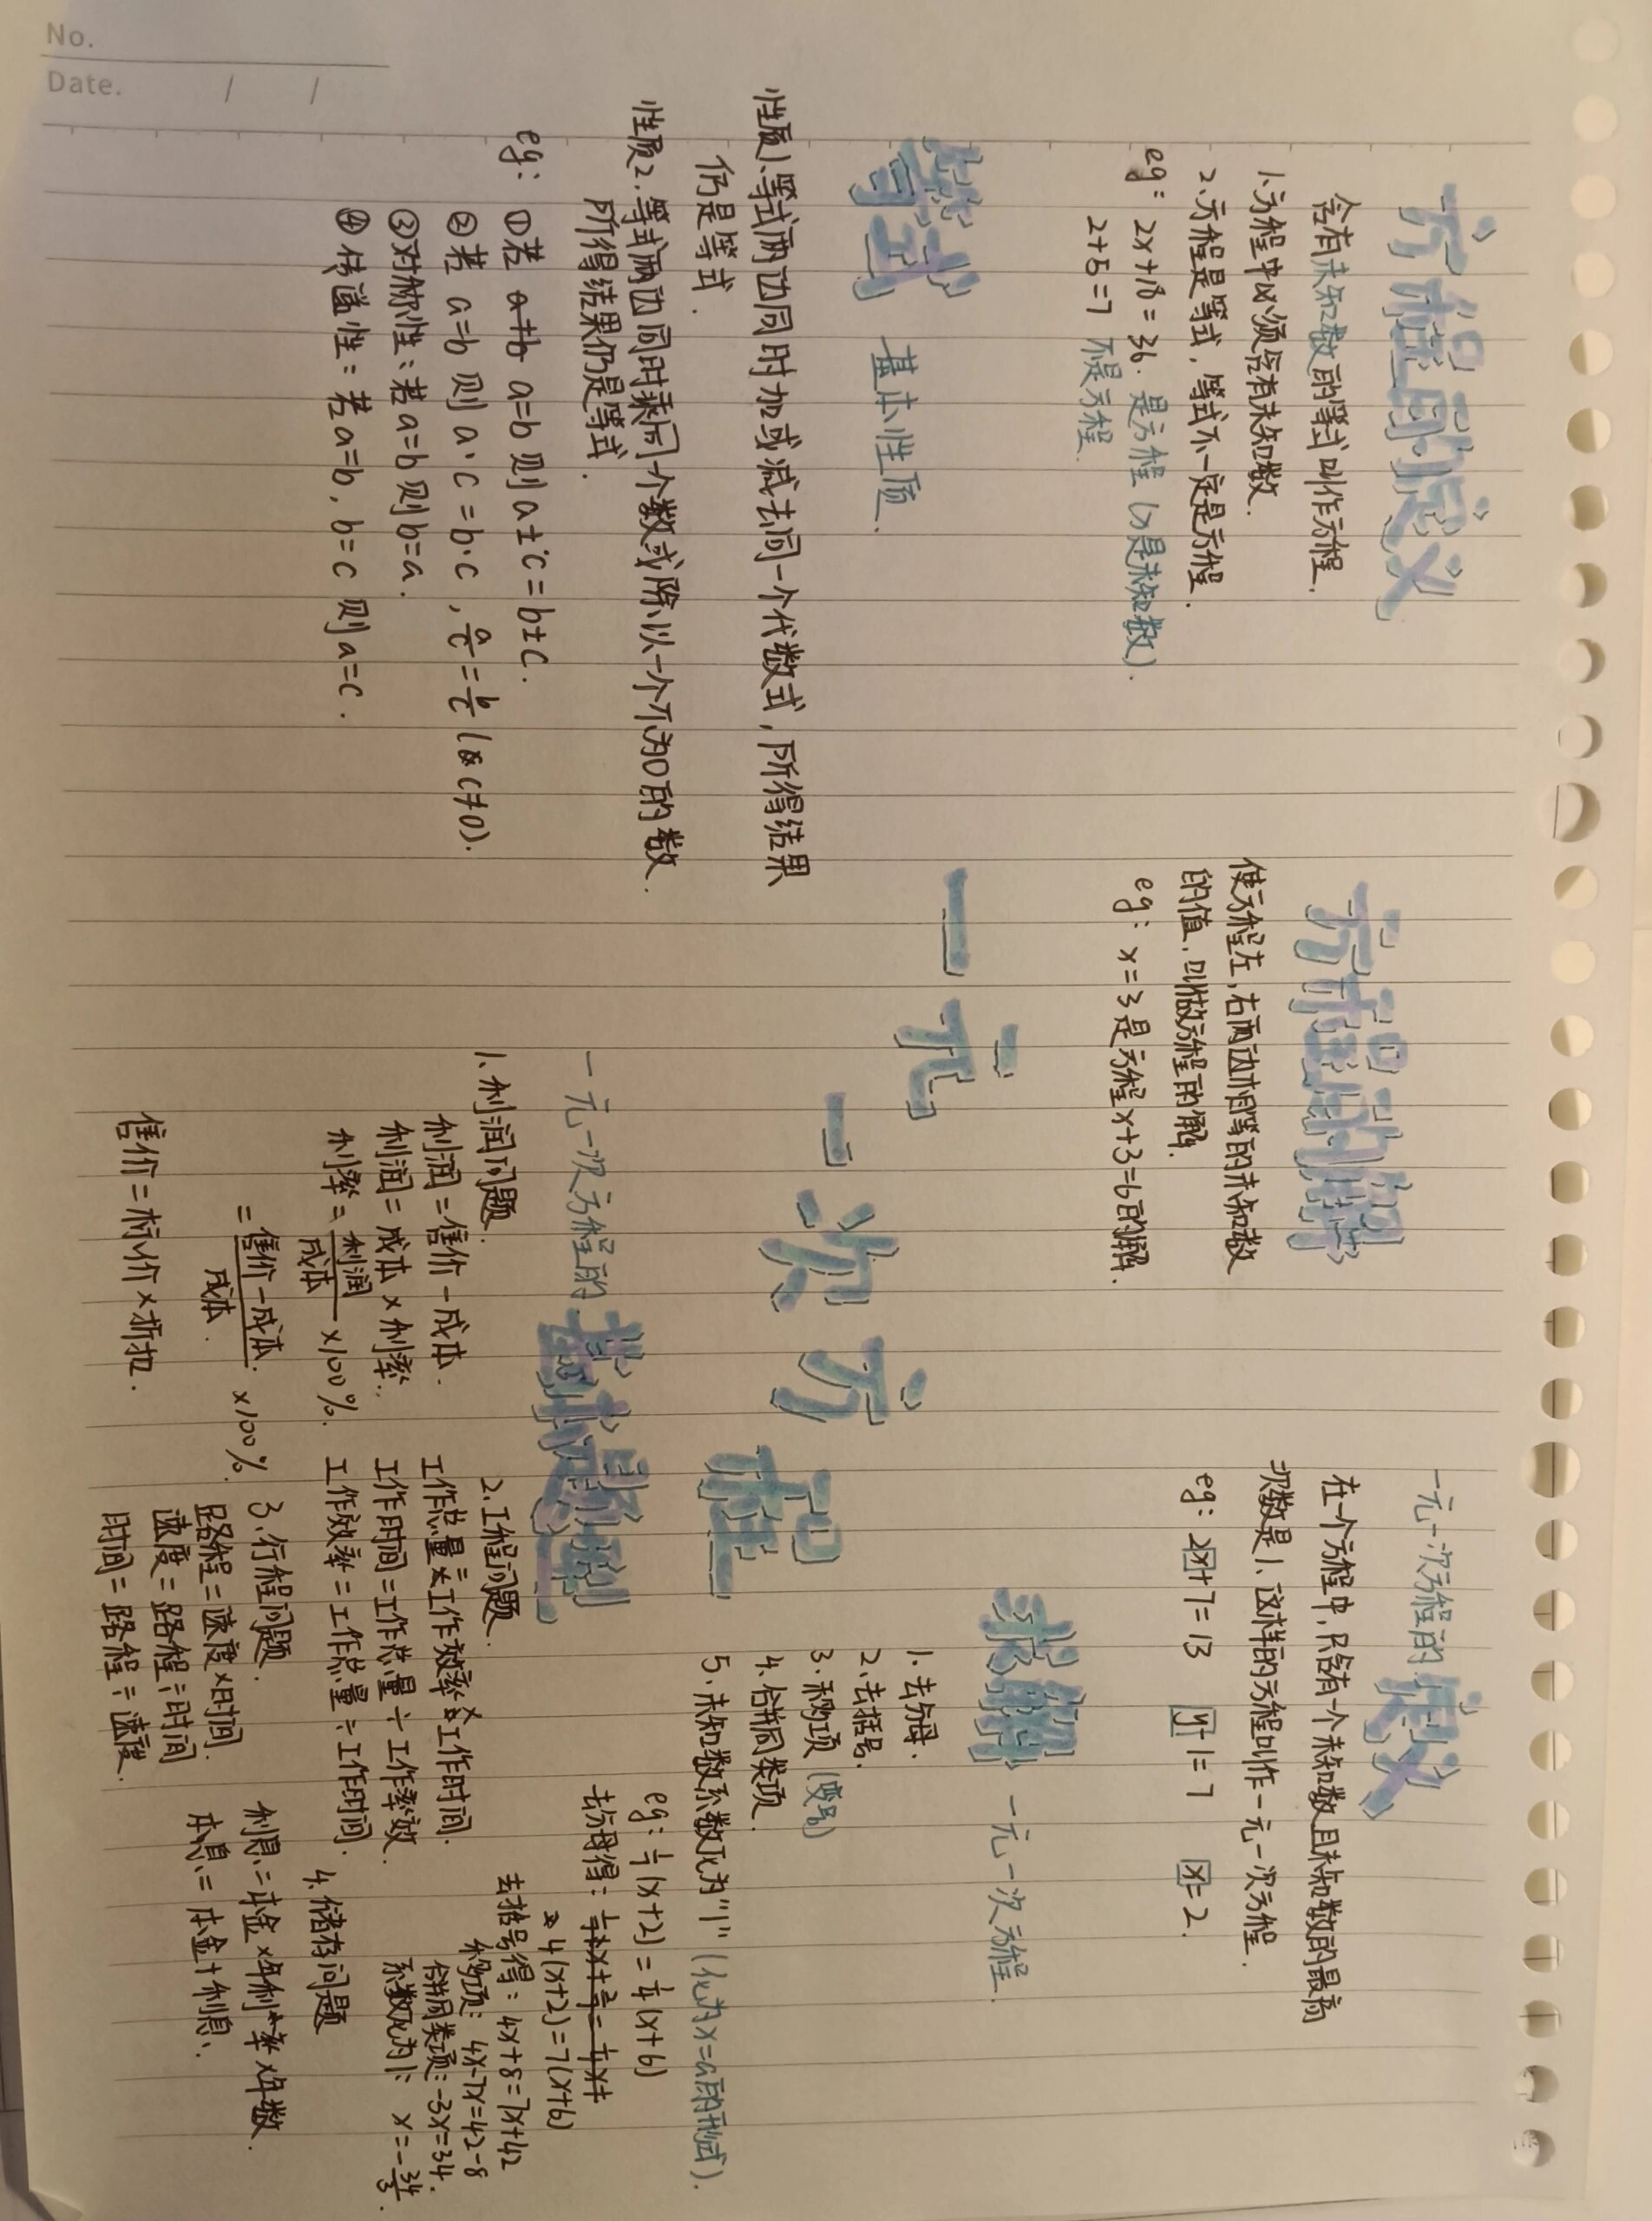 No.
Date. / /
方程的定义
含有未知数的等式叫作方程.
1.方程中必须含有未知数.
2.方程是等式，等式不一定是方程.
eg: 2x+18=36. 是方程(x是未知数).
2+5=7 不是方程.
方程的解
使方程左,右两边相等的未知数
的值，叫做方程的解.
eg: x=3是方程x+3=6的解.
一元一次方程的定义
在一个方程中，只含有一个未知数且未知数的最高
次数是1，这样的方程叫作一元一次方程.
eg: 2x+7=13 y-1=7 x=2.
一元一次方程
等式 基本性质.
性质1、等式两边同时加或减去同一个代数式，所得结果
仍是等式.
性质2、等式两边同时乘同一个数或除以一个不为0的数.
所得结果仍是等式.
eg: ①若 a≠b a=b 则 a±c=b±c.
②若 a=b 则 a·c=b·c, a/c=b/c (c≠0).
③对称性：若a=b则b=a.
④传递性：若a=b, b=c 则a=c.
求解 一元一次方程.
1.去分母.
2.去括号.
3.移项(变号)
4.合并同类项.
5.未知数系数化为"1"(化为x=a的形式).
eg: 1/7(x+2)=1/4(x+6)
去分母得:
4(x+2)=7(x+6)
去括号得: 4x+8=7x+42
移项: 4x-7x=42-8
合并同类项: -3x=34.
系数化为1: x=-34/3.
一元一次方程的基本题型
1.利润问题.
利润=售价-成本.
利润=成本×利率.
利率=利润/成本×100%.
=售价-成本/成本×100%.
售价=标价×折扣.
2.工程问题.
工作总量=工作效率×工作时间.
工作时间=工作总量÷工作率效.
工作效率=工作总量÷工作时间.
3.行程问题.
路程=速度×时间.
速度=路程÷时间
时间=路程÷速度.
4.储存问题
利息=本金×年利率×年数.
本息=本金+利息.